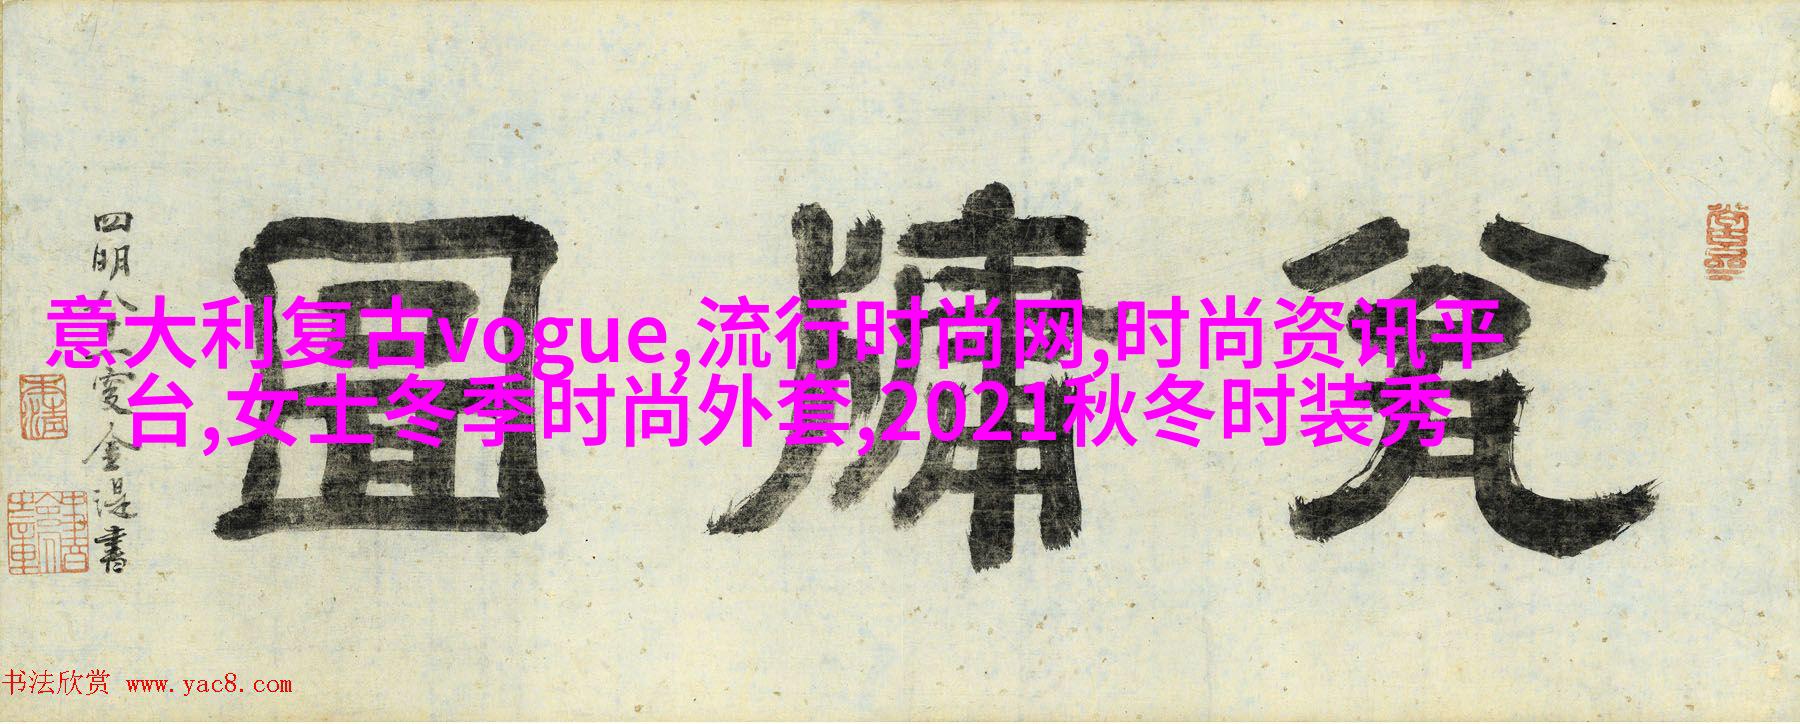 意大利复古vogue,流行时尚网,时尚资讯平
台,女士冬季时尚外套,2021秋冬时装秀
牖圖
四明
金湜書
书法欣赏 www.yac8.com